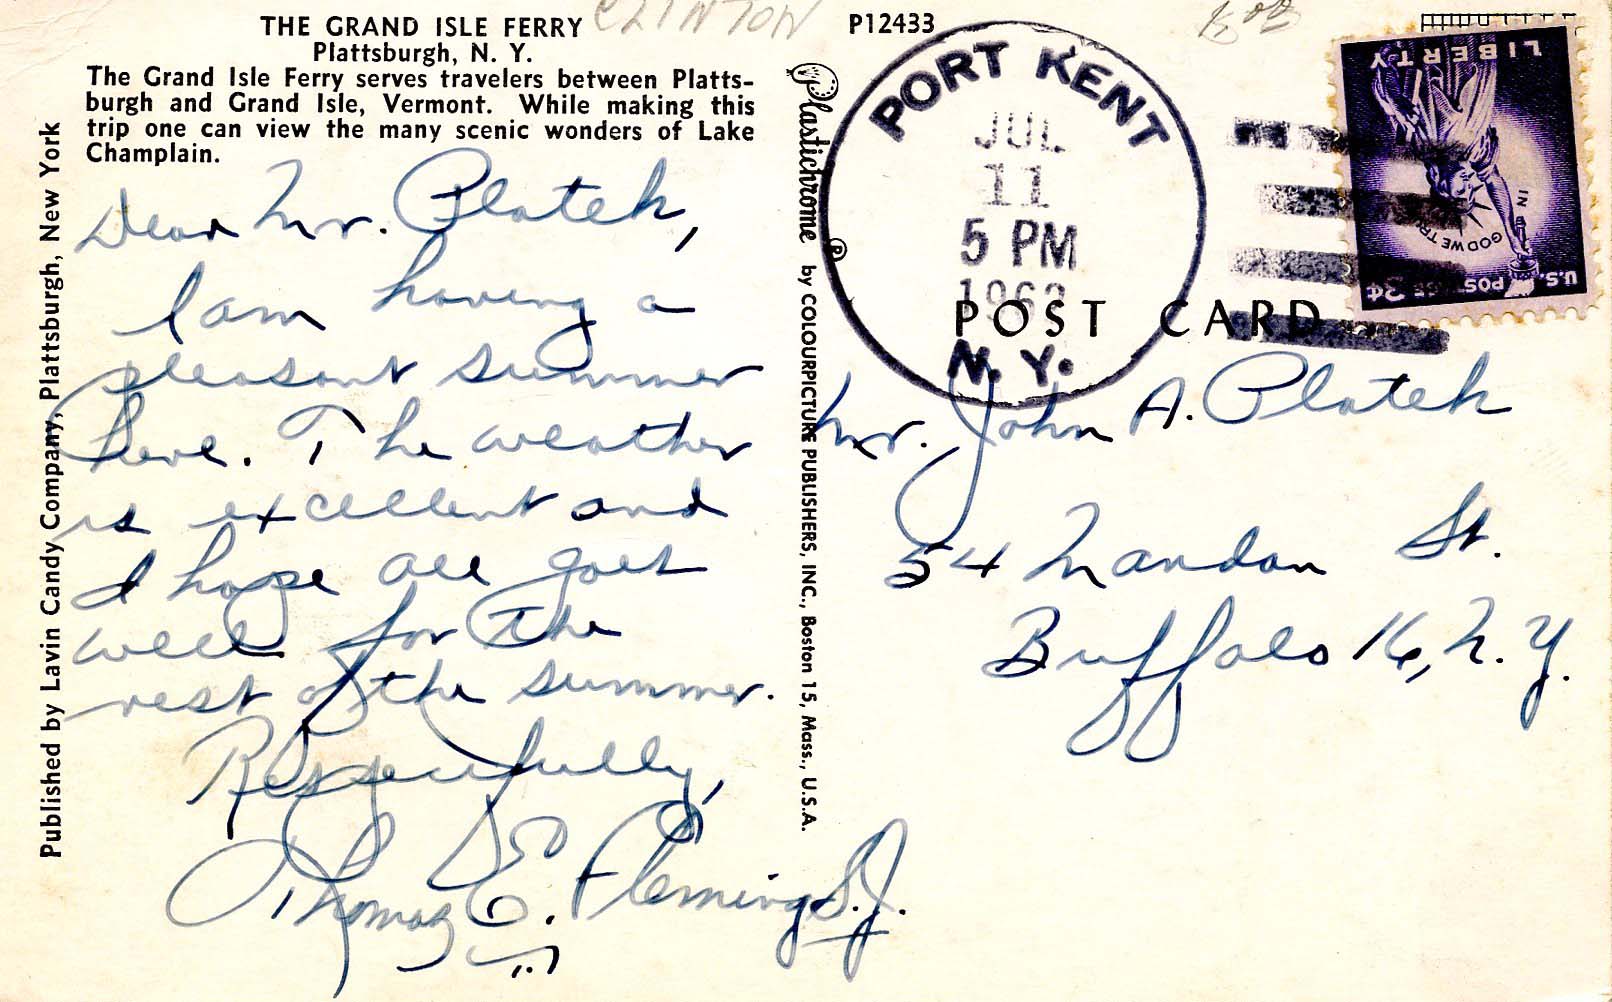 THE GRAND ISLE FERRY
Plattsburgh, N. Y.
The Grand Isle Ferry serves travelers between Platts-
burgh and Grand Isle, Vermont. While making this
trip one can view the many scenic wonders of Lake
Champlain.
CLINTON
P12433
Published by Lavin Candy Company, Plattsburgh, New York
Dear Mr. Platek,
I am having a
pleasant summer
here. The weather
is excellent and
I hope all goes
well for the
rest of the summer.
Respectfully,
Thomas E. Fleming S.J.
Plastichrome ® by COLOURPICTURE PUBLISHERS, INC., Boston 15, Mass., U.S.A.
PORT KENT
JUL
11
5 PM
N. Y.
POST CARD
LIBERTY
IN GOD WE TRUST
U.S. POSTAGE 3¢
Mr. John A. Platek
54 Mandan St.
Buffalo 16, N. Y.